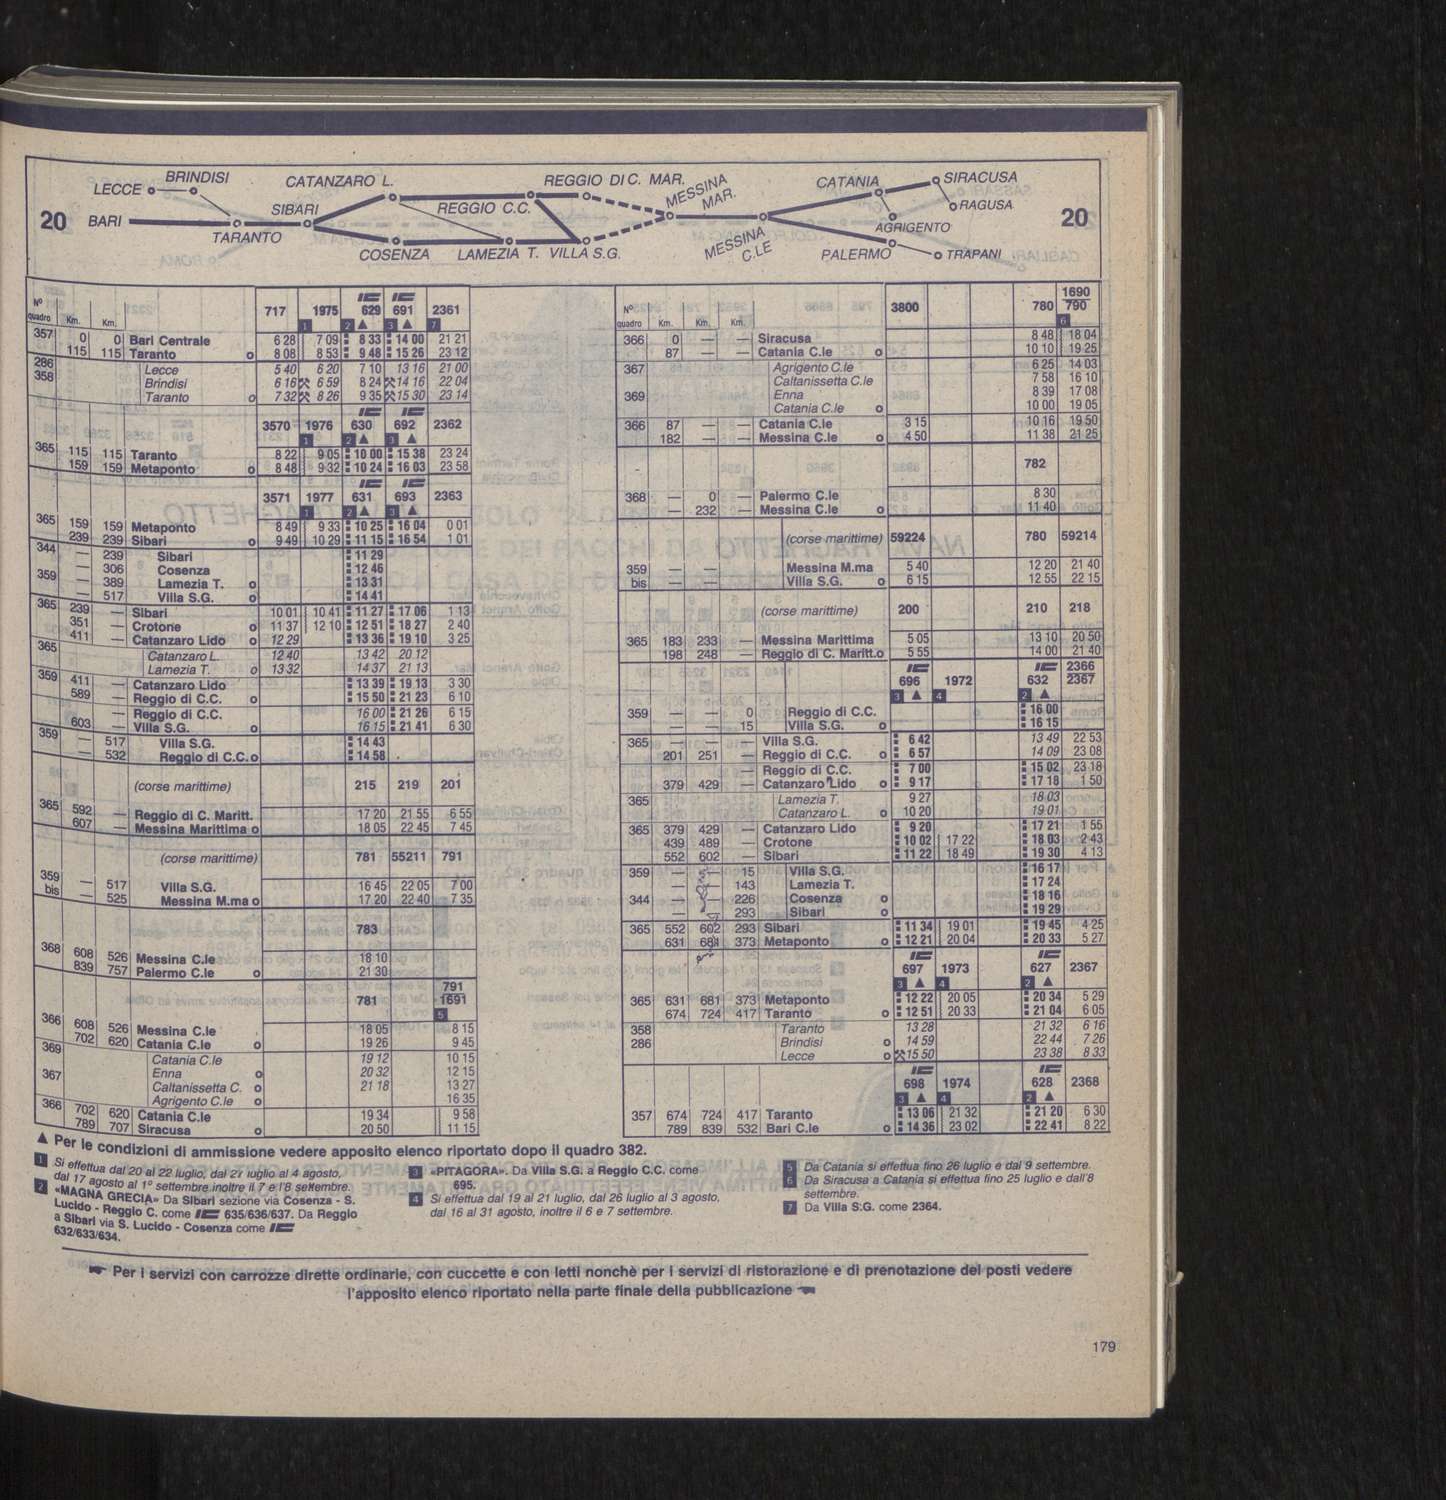 BRINDISI CATANZARO L. REGGIO DI C. MAR. MESSINA MAR. CATANIA SIRACUSA
LECCE
REGGIO C.C. RAGUSA
20 BARI SIBARI 20
TARANTO AGRIGENTO
COSENZA LAMEZIA T. VILLA S.G. MESSINA C.LE PALERMO TRAPANI
N° quadro Km. Km. 717 1975 629 691 2361
1 2 ▲ 3 ▲ 7
357 0 0 Bari Centrale 6 28 7 09 8 33 14 00 21 21
115 115 Taranto o 8 08 8 53 9 48 15 26 23 12
286 Lecce 5 40 6 20 7 10 13 16 21 00
358 Brindisi 6 16 6 59 8 24 14 16 22 04
Taranto o 7 32 8 26 9 35 15 30 23 14
3570 1976 630 692 2362
1 2 ▲ 3 ▲
365 115 115 Taranto 8 22 9 05 10 00 15 38 23 24
159 159 Metaponto o 8 48 9 32 10 24 16 03 23 58
3571 1977 631 693 2363
1 2 ▲ 3 ▲
365 159 159 Metaponto 8 49 9 33 10 25 16 04 0 01
239 239 Sibari o 9 49 10 29 11 15 16 54 1 01
344 — 239 Sibari 11 29
— 306 Cosenza 12 46
359 — 389 Lamezia T. o 13 31
— 517 Villa S.G. o 14 41
365 239 — Sibari 10 01 10 41 11 27 17 06 1 13
351 — Crotone o 11 37 12 10 12 51 18 27 2 40
411 — Catanzaro Lido o 12 29 13 36 19 10 3 25
365 Catanzaro L. 12 40 13 42 20 12
Lamezia T. o 13 32 14 37 21 13
359 411 — Catanzaro Lido 13 39 19 13 3 30
589 — Reggio di C.C. o 15 50 21 23 6 10
— Reggio di C.C. 16 00 21 26 6 15
603 — Villa S.G. o 16 15 21 41 6 30
359 — 517 Villa S.G. 14 43
— 532 Reggio di C.C. o 14 58
(corse marittime) 215 219 201
365 592 — Reggio di C. Maritt. 17 20 21 55 6 55
607 — Messina Marittima o 18 05 22 45 7 45
(corse marittime) 781 55211 791
359 — 517 Villa S.G. 16 45 22 05 7 00
bis — 525 Messina M.ma o 17 20 22 40 7 35
783
368 608 526 Messina C.le 18 10
839 757 Palermo C.le o 21 30
781 791 1691
5
366 608 526 Messina C.le 18 05 8 15
702 620 Catania C.le o 19 26 9 45
369 Catania C.le 19 12 10 15
Enna o 20 32 12 15
367 Caltanissetta C. o 21 18 13 27
Agrigento C.le o 16 35
366 702 620 Catania C.le 19 34 9 58
789 707 Siracusa o 20 50 11 15
N° quadro Km. Km. Km. 3800 780 1690 790
6
366 0 — — Siracusa 8 48 18 04
87 — — Catania C.le o 10 10 19 25
367 Agrigento C.le 6 25 14 03
Caltanissetta C.le 7 58 16 10
369 Enna 8 39 17 08
Catania C.le o 10 00 19 05
366 87 — — Catania C.le 3 15 10 16 19 50
182 — — Messina C.le o 4 50 11 38 21 25
782
368 — 0 — Palermo C.le 8 30
— 232 — Messina C.le o 11 40
(corse marittime) 59224 780 59214
359 — — Messina M.ma 5 40 12 20 21 40
bis — — Villa S.G. o 6 15 12 55 22 15
(corse marittime) 200 210 218
365 183 233 — Messina Marittima 5 05 13 10 20 50
198 248 — Reggio di C. Maritt.o 5 55 14 00 21 40
696 1972 632 2366 2367
3 ▲ 4 2 ▲
359 — — 0 Reggio di C.C. 16 00
— — 15 Villa S.G. o 16 15
365 — — — Villa S.G. 6 42 13 49 22 53
201 251 — Reggio di C.C. o 6 57 14 09 23 08
— Reggio di C.C. 7 00 15 02 23 18
379 429 — Catanzaro Lido o 9 17 17 18 1 50
365 Lamezia T. 9 27 18 03
Catanzaro L. o 10 20 19 01
365 379 429 — Catanzaro Lido 9 20 17 21 1 55
439 489 — Crotone 10 02 17 22 18 03 2 43
552 602 — Sibari 11 22 18 49 19 30 4 13
359 — — 15 Villa S.G. 16 17
— — 143 Lamezia T. 17 24
344 — — 226 Cosenza o 18 16
— 293 Sibari o 19 29
365 552 602 293 Sibari 11 34 19 01 19 45 4 25
631 681 373 Metaponto o 12 21 20 04 20 33 5 27
697 1973 627 2367
3 ▲ 4 2 ▲
365 631 681 373 Metaponto 12 22 20 05 20 34 5 29
674 724 417 Taranto o 12 51 20 33 21 04 6 05
358 Taranto 13 28 21 32 6 16
286 Brindisi o 14 59 22 44 7 26
Lecce o 15 50 23 38 8 33
698 1974 628 2368
3 ▲ 4 2 ▲
357 674 724 417 Taranto 13 06 21 32 21 20 6 30
789 839 532 Bari C.le o 14 36 23 02 22 41 8 22
▲ Per le condizioni di ammissione vedere apposito elenco riportato dopo il quadro 382.
1 Si effettua dal 20 al 22 luglio, dal 27 luglio al 4 agosto,
dal 17 agosto al 1° settembre inoltre il 7 e l'8 settembre.
2 «MAGNA GRECIA» Da Sibari sezione via Cosenza - S.
Lucido - Reggio C. come IC 635/636/637. Da Reggio
a Sibari via S. Lucido - Cosenza come IC
632/633/634.
3 «PITAGORA». Da Villa S.G. a Reggio C.C. come
695.
4 Si effettua dal 19 al 21 luglio, dal 26 luglio al 3 agosto,
dal 16 al 31 agosto, inoltre il 6 e 7 settembre.
5 Da Catania si effettua fino 26 luglio e dal 9 settembre.
6 Da Siracusa a Catania si effettua fino 25 luglio e dall'8
settembre.
7 Da Villa S.G. come 2364.
Per i servizi con carrozze dirette ordinarie, con cuccette e con letti nonchè per i servizi di ristorazione e di prenotazione dei posti vedere
l'apposito elenco riportato nella parte finale della pubblicazione
179